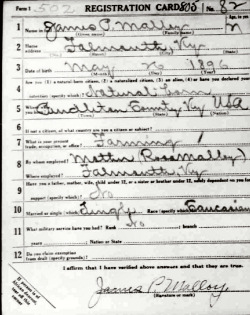 Form 1 502 REGISTRATION CARD No. 82
1 Name in full James P. Malloy Age in yrs.
(Given name) (Family name)
2 Home address Falmouth, Ky.
3 Date of birth May 26 1896
(Month) (Day) (Year)
4 Are you (1) a natural-born citizen, (2) a naturalized citizen, (3) an alien, (4) or have you declared your
intention (specify which)? Natural born
5 Where were you born? Pendleton County, Ky USA
6 If not a citizen, of what country are you a citizen or subject?
7 What is your present trade, occupation, or office? Farming
8 By whom employed? Mother (Rosa Malloy)
Where employed? Falmouth, Ky
9 Have you a father, mother, wife, child under 12, or a sister or brother under 12, solely dependent on you for
support (specify which)? No
10 Married or single (which)? Single Race (specify which)? Caucasian
11 What military service have you had? Rank No branch
years Nation or State
12 Do you claim exemption from draft (specify grounds)?
I affirm that I have verified above answers and that they are true.
James P. Malloy
(Signature or mark)